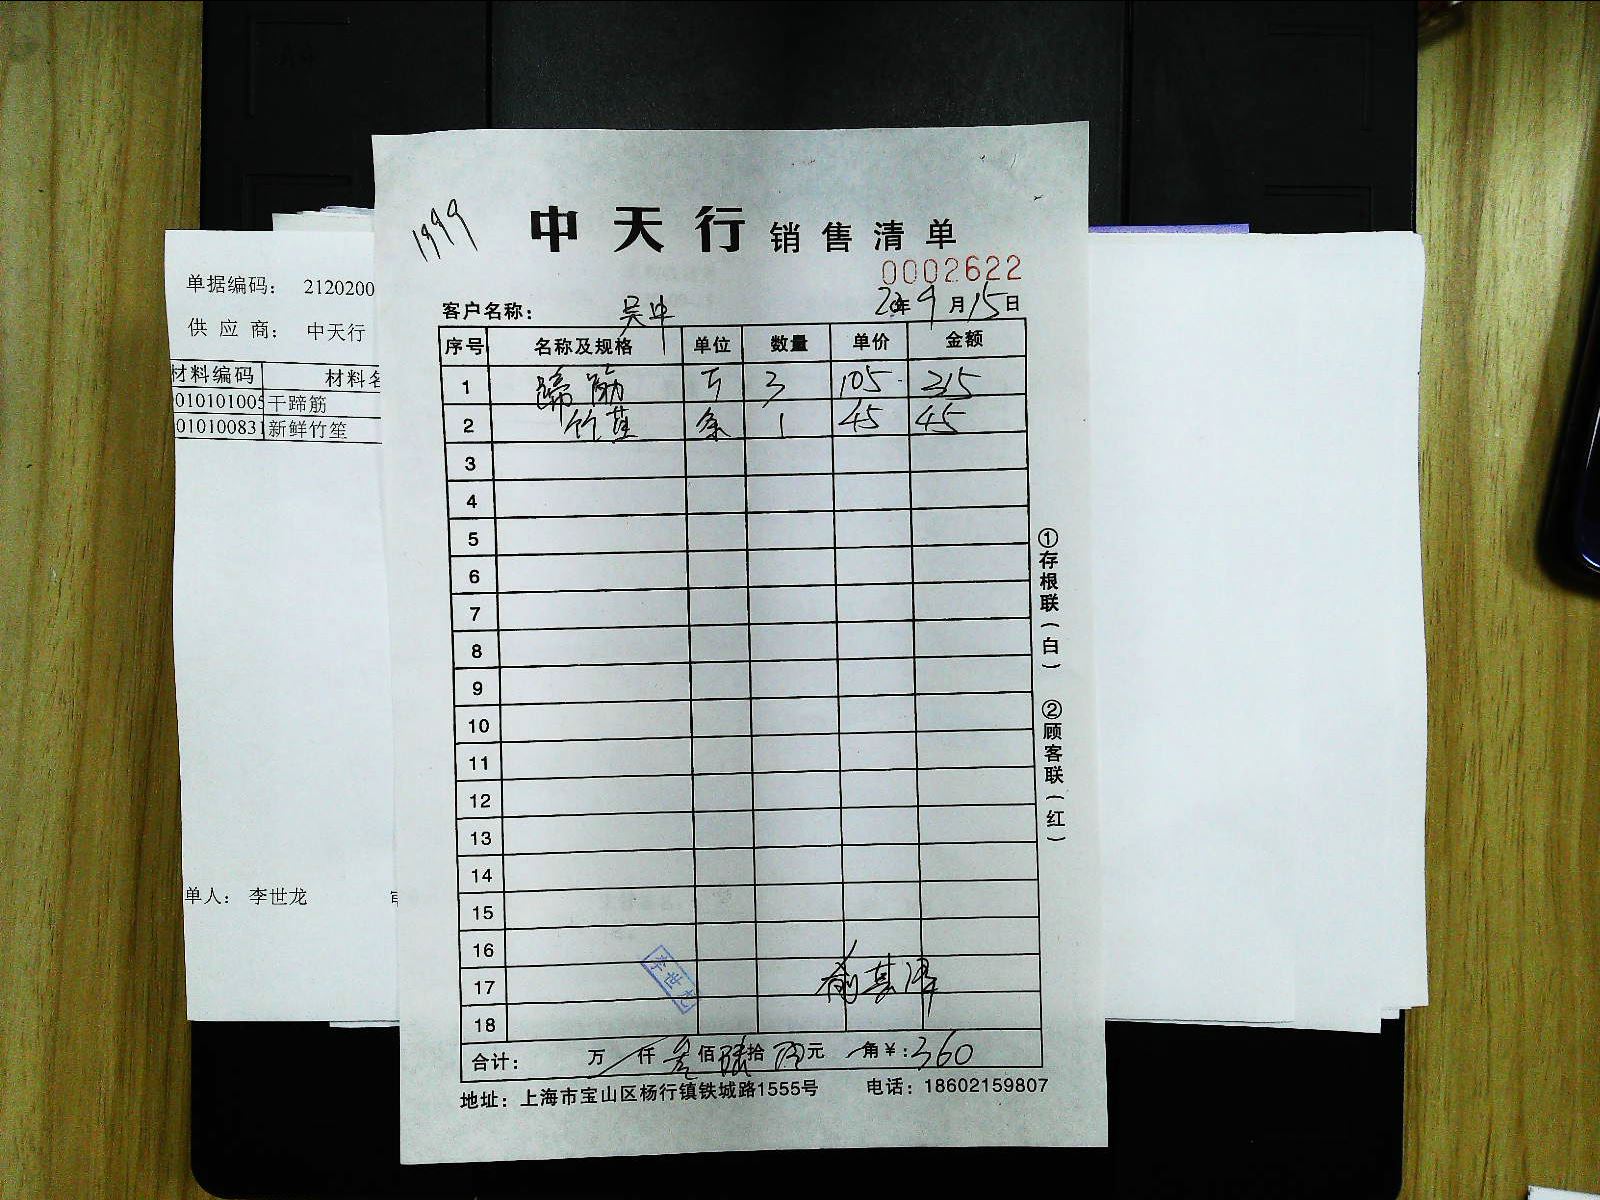 1999
中天行 销售清单
0002622
客户名称： 吴中
年9月15日
序号 名称及规格 单位 数量 单价 金额
1 蹄筋 3 105 315
2 竹荪 条 1 45 45
3
4
5
6
7
8
9
10
11
12
13
14
15
16
17
18
李世龙
合计： 万 仟 叁佰陆拾 元 角 ¥:360
地址：上海市宝山区杨行镇铁城路1555号 电话：18602159807
①存根联（白）
②顾客联（红）
单据编码： 2120200
供应商： 中天行
材料编码 材料名
010101005 干蹄筋
010100831 新鲜竹笙
单人： 李世龙